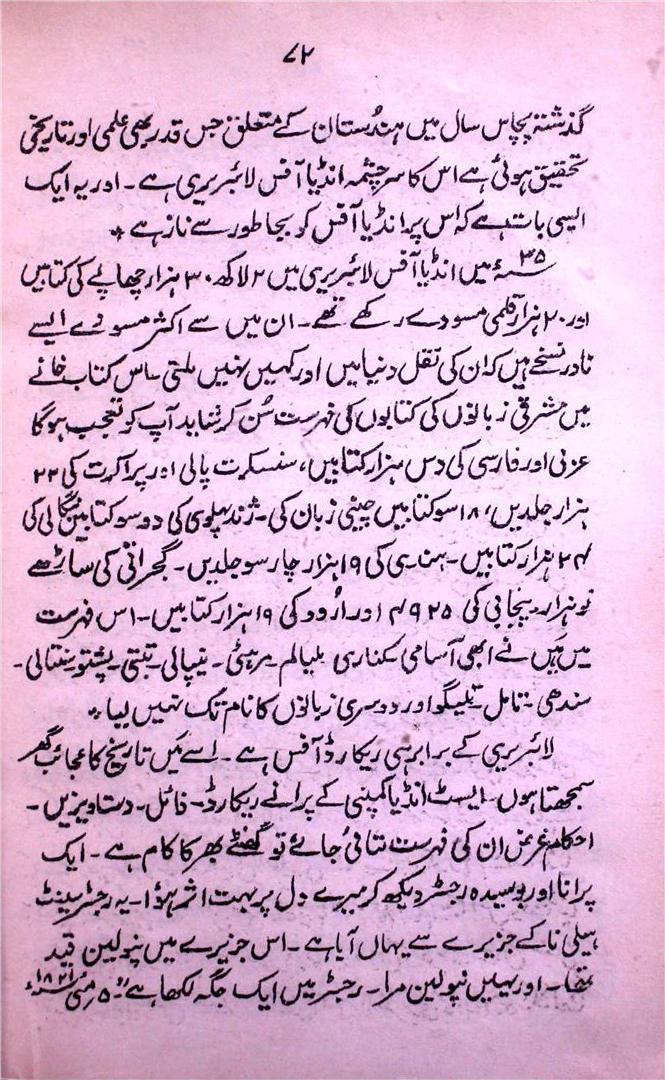 ۷۲
گذشتہ پچاس سال میں ہندُستان کے متعلق جس قدر بھی علمی اور تاریخی
تحقیق ہوئی ہے اس کا سرچشمہ انڈیا آفس لائبریری ہے۔ اور یہ ایک
ایسی بات ہے کہ اس پر انڈیا آفس کو بجا طور سے ناز ہے *
۳۵ء میں انڈیا آفس لائبریری میں ۲ لاکھ ۳۰ ہزار چھاپے کی کتابیں
اور ۲۰ ہزار قلمی مسودے رکھے تھے۔ ان میں سے اکثر مسودے ایسے
نادر نسخے ہیں کہ ان کی نقل دنیا میں اور کہیں نہیں ملتی۔ اس کتاب خانے
میں مشرقی زبانوں کی کتابوں کی فہرست سُن کر شاید آپ کو تعجب ہوگا
عربی اور فارسی کی دس ہزار کتابیں، سنسکرت پالی اور پراکرت کی ۲۳
ہزار جلدیں، ۱۸ سو کتابیں چینی زبان کی۔ ژند پہلوی کی دو سو کتابیں بنگالی کی
۲۴ ہزار کتابیں۔ ہندی کی ۱۹ ہزار چار سو جلدیں۔ گجراتی کی ساڑھے
نو ہزار۔ پنجابی کی ۴۹۲۵ اور اُردو کی ۱۹ ہزار کتابیں۔ اس فہرست
میں مَیں نے ابھی آسامی کناری ملیالم مرہٹی۔ نیپالی۔ تبتی۔ پشتو سنتالی۔
سندھی۔ تامل۔ تیلیگو اور دوسری زبانوں کا نام تک نہیں لیا *
لائبریری کے برابر ہی ریکارڈ آفس ہے۔ اسے مَیں تاریخ کا عجائب گھر
سمجھتا ہوں۔ ایسٹ انڈیا کمپنی کے پرانے ریکارڈ۔ فائل۔ دستاویزیں۔
احکام غرض ان کی فہرست بتائی جائے تو گھنٹے بھر کا کام ہے۔ ایک
پرانا اور بوسیدہ رجسٹر دیکھ کر میرے دل پر بہت اثر ہؤا۔ یہ رجسٹر سینٹ
ہیلی نا کے جزیرے سے یہاں آیا ہے۔ اس جزیرے میں نپولین قید
تھا۔ اور یہیں نپولین مرا۔ رجسٹر میں ایک جگہ لکھا ہے "۵ مئی ۱۸۲۱ء